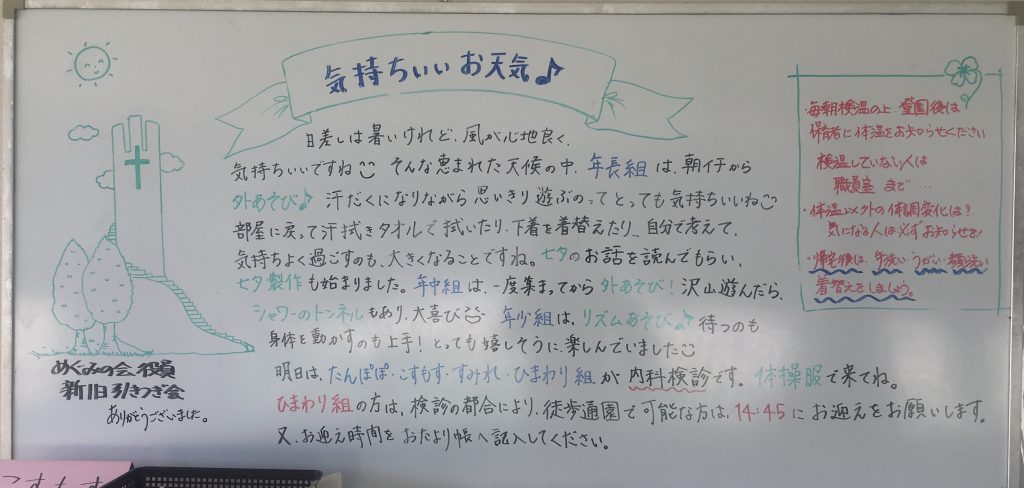 気持ちいいお天気♪
日差しは暑いけれど、風が心地良く、
気持ちいいですね そんな恵まれた天候の中、年長組は、朝イチから
外あそび♪ 汗だくになりながら思いきり遊ぶのってとっても気持ちいいね
部屋に戻って汗拭きタオルで拭いたり、下着を着替えたり…自分で考えて、
気持ちよく過ごすのも、大きくなることですね。七夕のお話を読んでもらい、
七夕製作も始まりました。年中組は、一度集まってから外あそび！沢山遊んだら、
シャワーのトンネルもあり、大喜び 年少組は、リズムあそび♪ 待つのも
身体を動かすのも上手！とっても嬉しそうに、楽しんでいました
明日は、たんぽぽ・こすもす・すみれ・ひまわり組が内科検診です。体操服で来てね。
ひまわり組の方は、検診の都合により、徒歩通園で可能な方は、14:45にお迎えをお願いします。
又、お迎え時間をおたより帳へ記入してください。
めぐみの会役員
新旧引きつぎ会
ありがとうございました。
・毎朝検温の上、登園後は
保育者に体温をお知らせください
検温していない人は
職員室まで…
・体温以外の体調変化は？
気になる人は必ずお知らせを！
・帰宅後は、手洗いうがい・顔洗い
着替えをしましょう。
こすもす